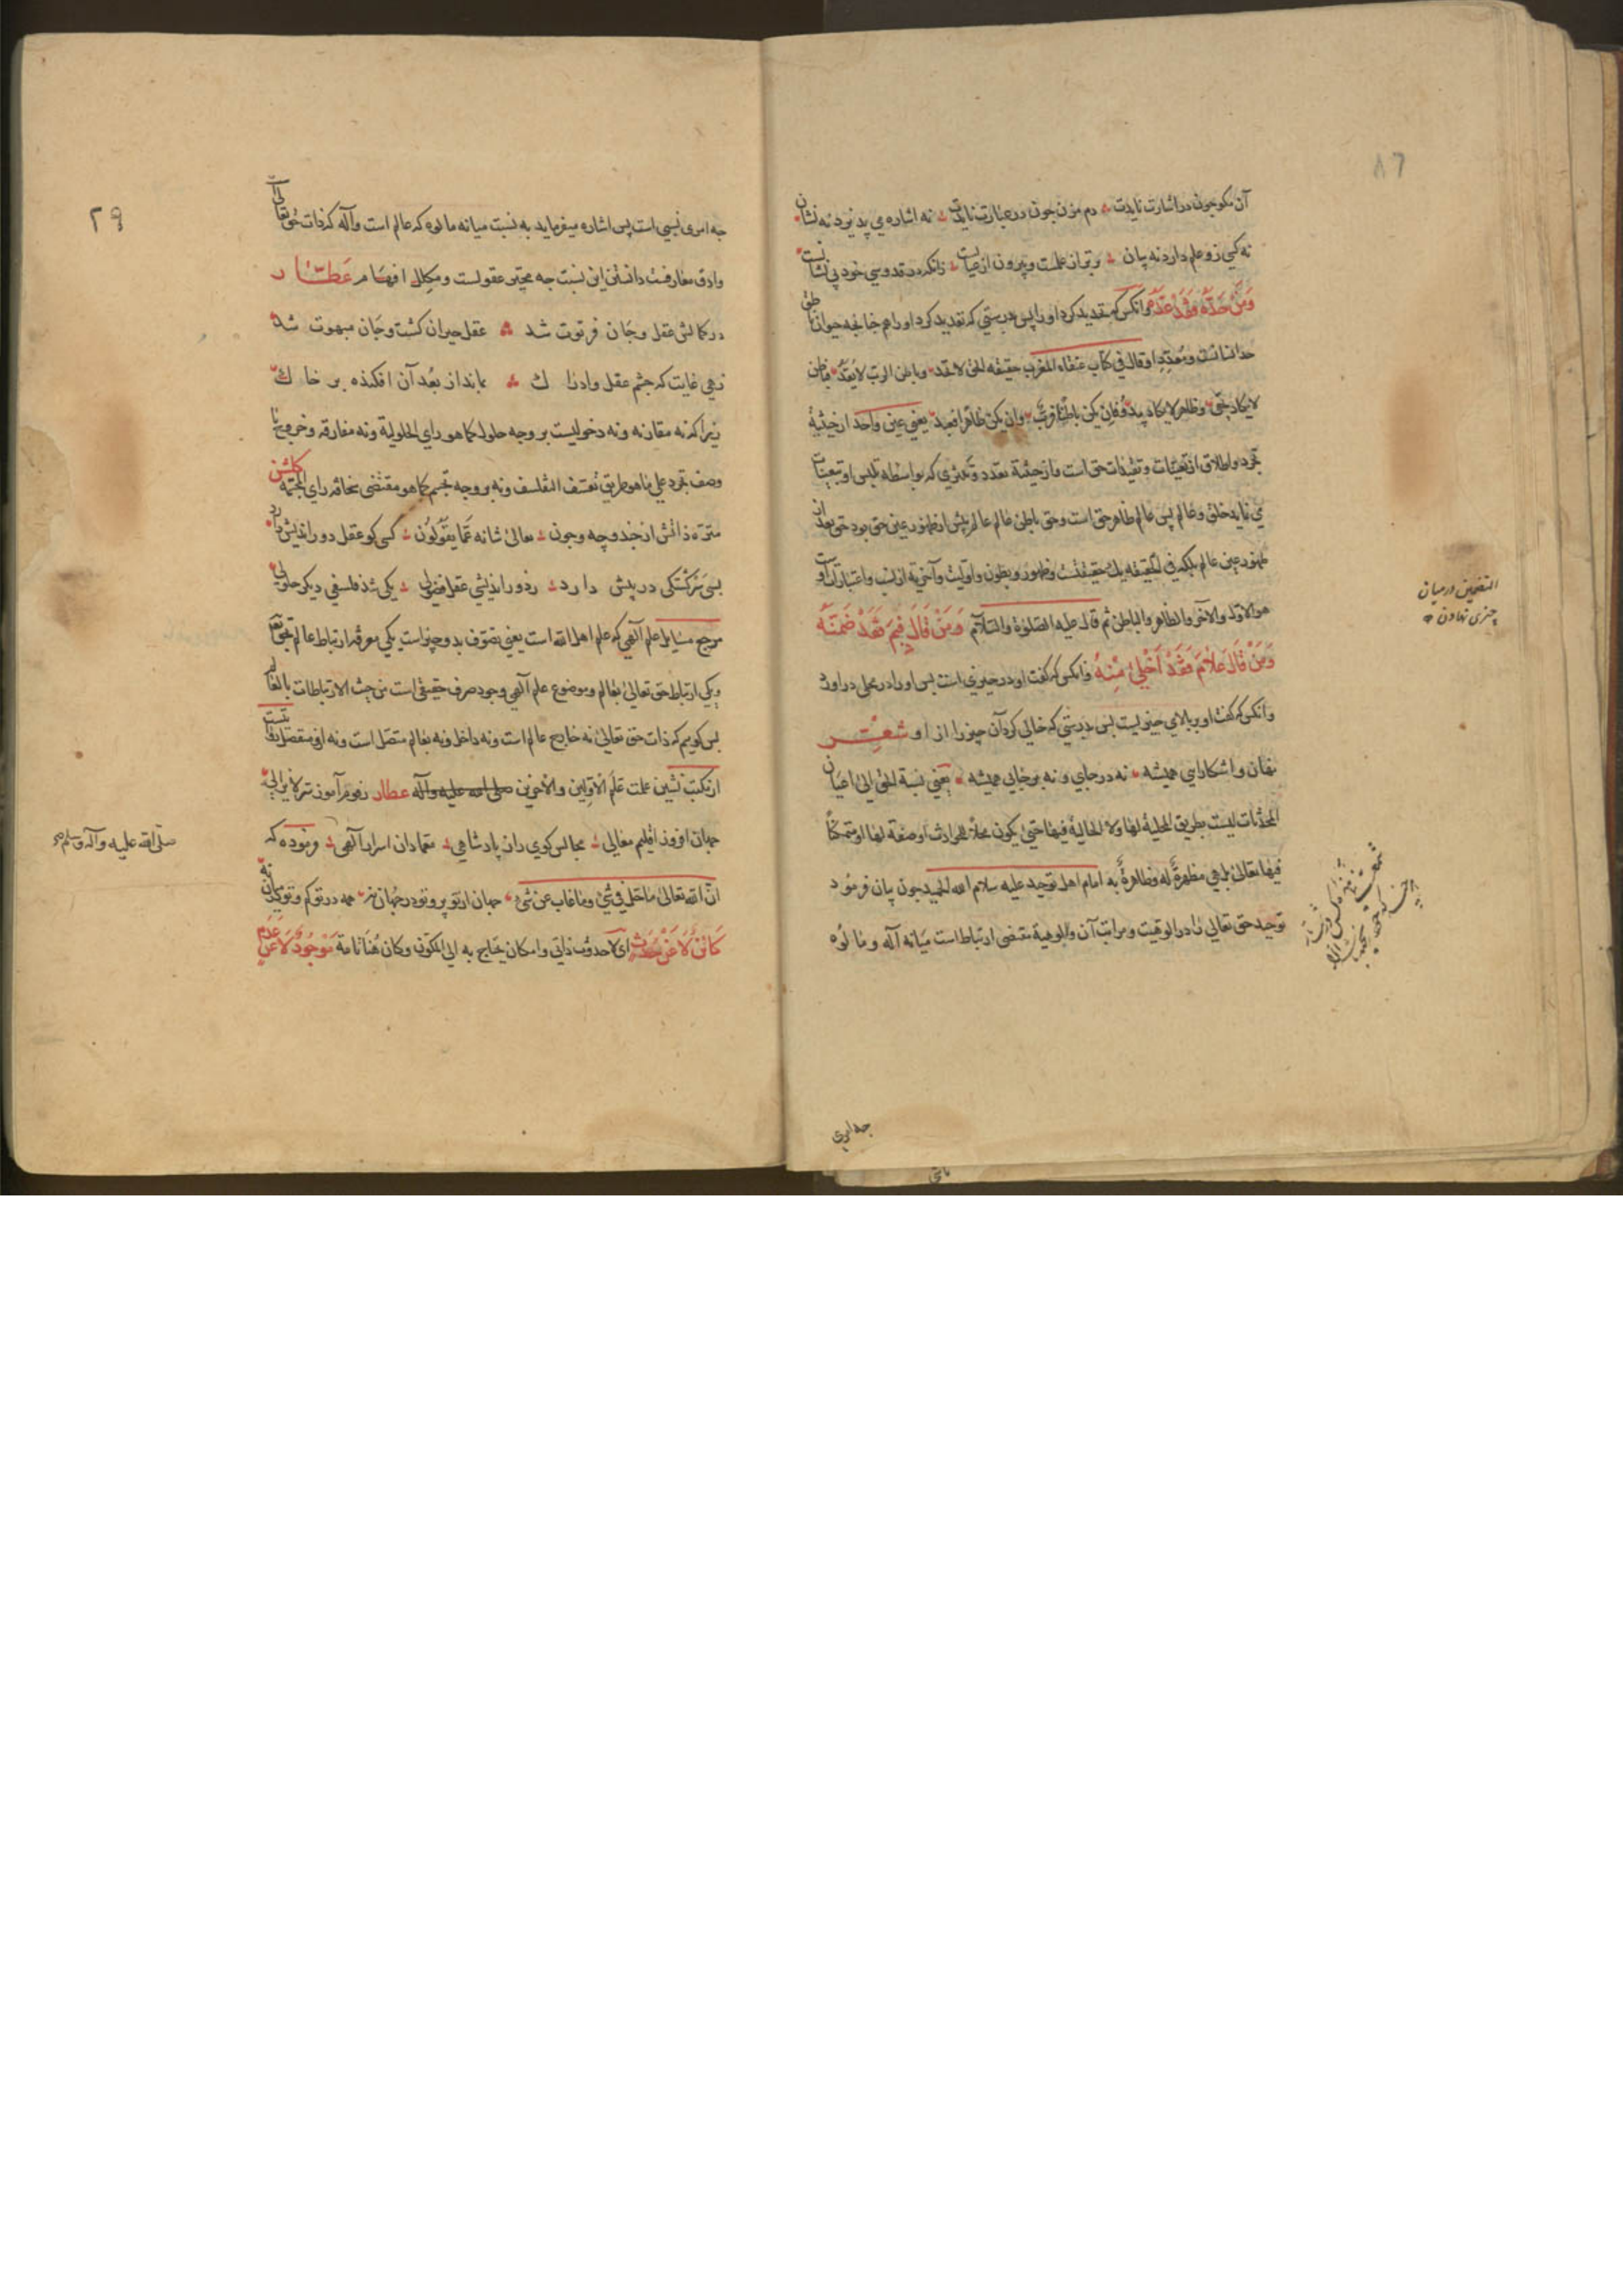 آن مگو چون در اشارت نایدت ؞ دم مزن چون در عبارت نایدت ؞ نه اشاره می پذیرد نه نشان
نه کسی زو علم دارد نه بیان ؞ برتر از علمست و بیرون از عیانست ؞ زانکه در قدوسی خود بی نشانست
وَمَنْ حَدَّهُ فَقَدْ عَدَّهُ وانکس که تحدید کرد او را پس بدرستی که تعدید کرد او را هم چنانچه حیوان ناطق
حد انسانست و معدد او قال فی کتاب عنقاء المغرب حقیقه الحق لا تحد وباطن الرب لا یعد فباطن
لا یکاد یخفی وظاهر لا یکاد یبدو فان یکن باطنا فرب وان یکن ظاهرا فعبد یعنی عین واحد از حیثیة
تجرد و اطلاق از تعینات و تقیدات حق است و از حیثیة تعدد و تکثری که بواسطه تلبس او بتعینات
می نماید خلق و عالم پس عالم ظاهر حق است و حق باطن عالم عالم پیش از ظهور عین حق بود حق بعد از
ظهور عین عالم بلکه فی الحقیقه یک حقیقتست و ظهور و بطون و اولیت و آخریة از نسب و اعتبارات او
هو الاول والآخر والظاهر والباطن ثم قال علیه الصلوة والسلام وَمَنْ قَالَ فِیمَ فَقَدْ ضَمَّنَهُ
وَمَنْ قَالَ عَلَامَ فَقَدْ اَخْلیٰ مِنْهُ وانکس که گفت او در چیزی است پس او را در محلی در آورد
وانکس که گفت او بر بالای چیزیست پس بدرستی که خالی کرد آن چیز را از او شعر
نهان و اشکارایی همیشه نه در جای و نه بر جایی همیشه یعنی نسبة الحق الی اعیان
المحدثات لیست بطریق المحلیة لها ولا الحالیة فیها حتی یکون محلا للحوادث او صفة لها او متمکنا
فیها تعالی بل هی مظهرة له وظاهرة به امام اهل توحید علیه سلام الله الحمید چون بیان فرمود
توحید حق تعالی را در الوهیت و مراتب آن و الوهیة مقتضی ارتباط است میانه آله و مالوه
التضمین در میان
چیزی نهادن
چه امری
چه امری نسبی است پس اشاره میفرماید به نسبت میانه مالوه که عالم است وآله که ذات حق تعالی
وادق معارفست دانستن این نسبت چه محیر عقولست و مکلل افهام عَطّار
در کمالش عقل و جان فرتوت شد ؞ عقل حیران گشت و جان مبهوت شد
زهی غایت که چشم عقل و ادراک ؞ بماند از بعد آن افکنده بر خاک
زیرا که نه مقارنه و نه دخولیست بر وجه حلول کما هو رای الحلولیة و نه مفارقه و خروج با
وصف تجرد علی ما هو طریق تعسف التفلسف و نه بر وجه تجسم کما هو مقتضی سخافه رای المجسمه گلشن
منزه ذاتش از چند و چه و چون ؞ تعالی شانه عَمّا یَقُولُون ؞ کسی کو عقل دور اندیش دارد
بسی سرگشتگی در پیش دارد ؞ ز دور اندیشی عقل فضولی ؞ یکی شد فلسفی دیگر حلولی
مرجع مسایل علم آلهی که علم اهل الله است یعنی تصوف بدو چیز است یکی معرفه ارتباط عالم بحق تعالی
و یکی ارتباط حق تعالی بعالم و موضوع علم آلهی وجود صرف حقیقی است من حیث الارتباطات بالعالم
پس گوییم که ذات حق تعالی نه خارج عالم است و نه داخل و نه بعالم متصل است و نه از و منفصل
از مکتب نشین علمت علم الاولین والآخرین صلی الله علیه وآله عطار رموز آموز سر لایزالی
جهان افروز اقلیم معالی ؞ مجالس گوی راز پادشاهی ؞ معما دان اسرار آلهی ؞ فرموده که
انّ الله تعالی ما حَلّ فی شیٔ وما غاب عن شیٔ جهان از تو پر و تو در جهان نه همه در تو گم و تو در میان نه
کَائِنٌ لَا عَنْ حَدَثٍ ای لا حدوث ذاتی و امکان یحتاج به الی المکون وکان هنا تامة مَوْجُودٌ لَا عَنْ عَدَمٍ
صلی الله علیه وآله وسلم